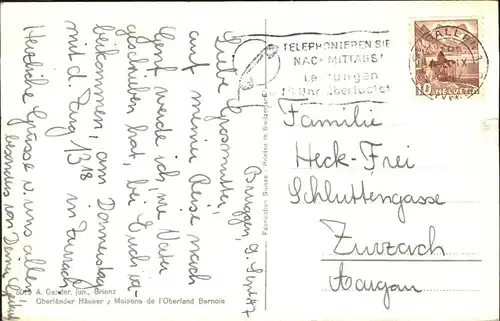 Bruggen, 9. Sept. 47
Liebe Grossmutter,
auf meiner Reise nach
Genf werde ich, wie Vater
geschrieben hat, bei Euch
beikommen, am Donnerstag
mit d. Zug 13¹⁸ in Zurzach
Herzliche Grüsse v. uns allen,
besonders von Deiner
5019 A. Gander, jun., Brienz
Oberländer Häuser / Maisons de l'Oberland Bernois
TELEPHONIEREN SIE
NACHMITTAGS!
Leitungen
Uhr überlastet
ST. GALLEN 1
10 HELVETIA
Familie
Heck-Frei
Schluttengasse
Zurzach
Aargau